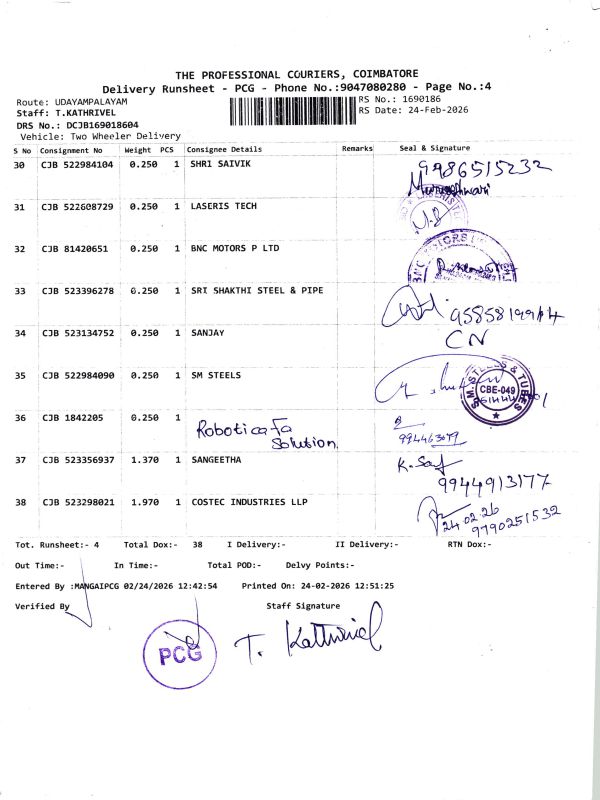 THE PROFESSIONAL COURIERS, COIMBATORE
Delivery Runsheet - PCG - Phone No.:9047080280 - Page No.:4
Route: UDAYAMPALAYAM
RS No.: 1690186
Staff: T.KATHRIVEL
RS Date: 24-Feb-2026
DRS No.: DCJB169018604
Vehicle: Two Wheeler Delivery
S No Consignment No Weight PCS Consignee Details Remarks Seal & Signature
30 CJB 522984104 0.250 1 SHRI SAIVIK 9986515232
31 CJB 522608729 0.250 1 LASERIS TECH
32 CJB 81420651 0.250 1 BNC MOTORS P LTD
33 CJB 523396278 0.250 1 SRI SHAKTHI STEEL & PIPE
34 CJB 523134752 0.250 1 SANJAY CN
35 CJB 522984090 0.250 1 SM STEELS S.M. STEELS & TUBES CBE-049
36 CJB 1842205 0.250 1 Robotica Fa
Solution.
37 CJB 523356937 1.370 1 SANGEETHA
9944913177
38 CJB 523298021 1.970 1 COSTEC INDUSTRIES LLP
24.02.26
9790251532
Tot. Runsheet:- 4 Total Dox:- 38 I Delivery:- II Delivery:- RTN Dox:-
Out Time:- In Time:- Total POD:- Delvy Points:-
Entered By :MANGAIPCG 02/24/2026 12:42:54 Printed On: 24-02-2026 12:51:25
Verified By Staff Signature
PCG T. Kathrivel